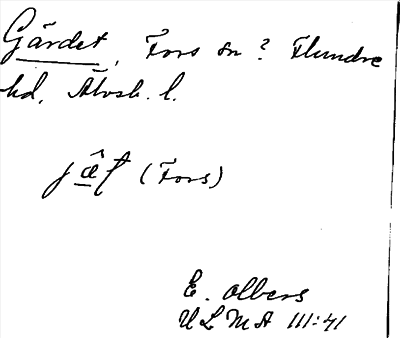 Gärdet, Fors sn? Flundre
hd, Älvsb. l.
jæ̂t (Fors)
E. Olbers
ULMA 111:41